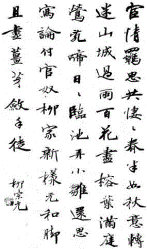 宦情羈思共悽〻春半如秋意轉
迷山城過雨百花盡榕葉滿庭
鶯亂啼日〻臨池弄小雛還思
寫論付官奴柳家新樣元和腳
且盡薑芽斂手徒 柳宗元